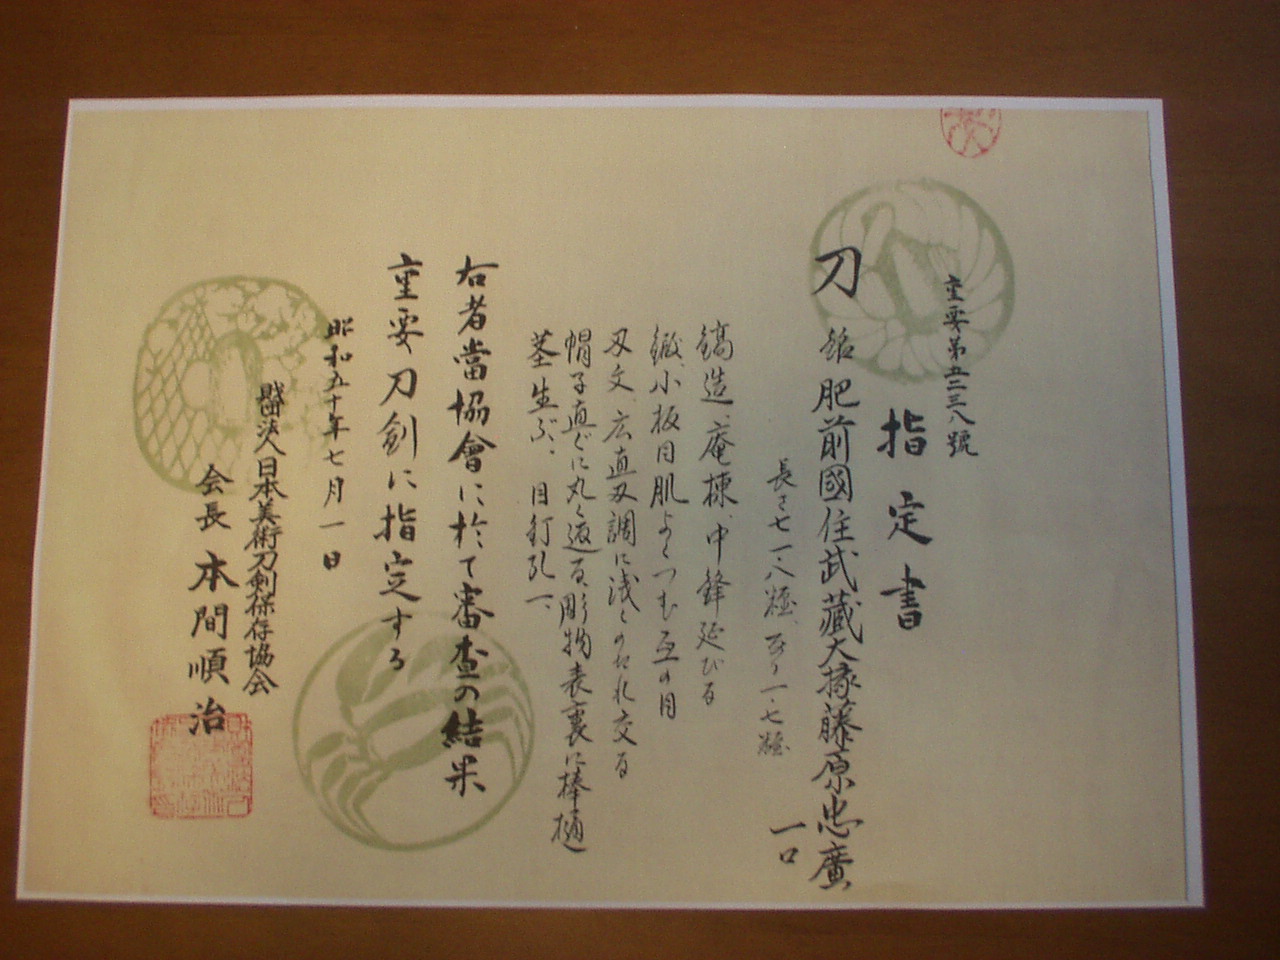 重要第五二三八號
指定書
刀 銘 肥前國住武藏大掾藤原忠廣
長さ七一・八糎、反り一・七糎 一口
鎬造、庵棟、中鋒延びる
鍛、小板目肌よくつむ
刃文、広直刃調に浅くのたれ交る
帽子直ぐに丸く返る、彫物表裏に棒樋
茎生ぶ、目釘孔一、
右者當協會に於て審査の結果
重要刀剣に指定する
昭和五十年七月一日
財団法人日本美術刀剣保存協会
会長 本間順治